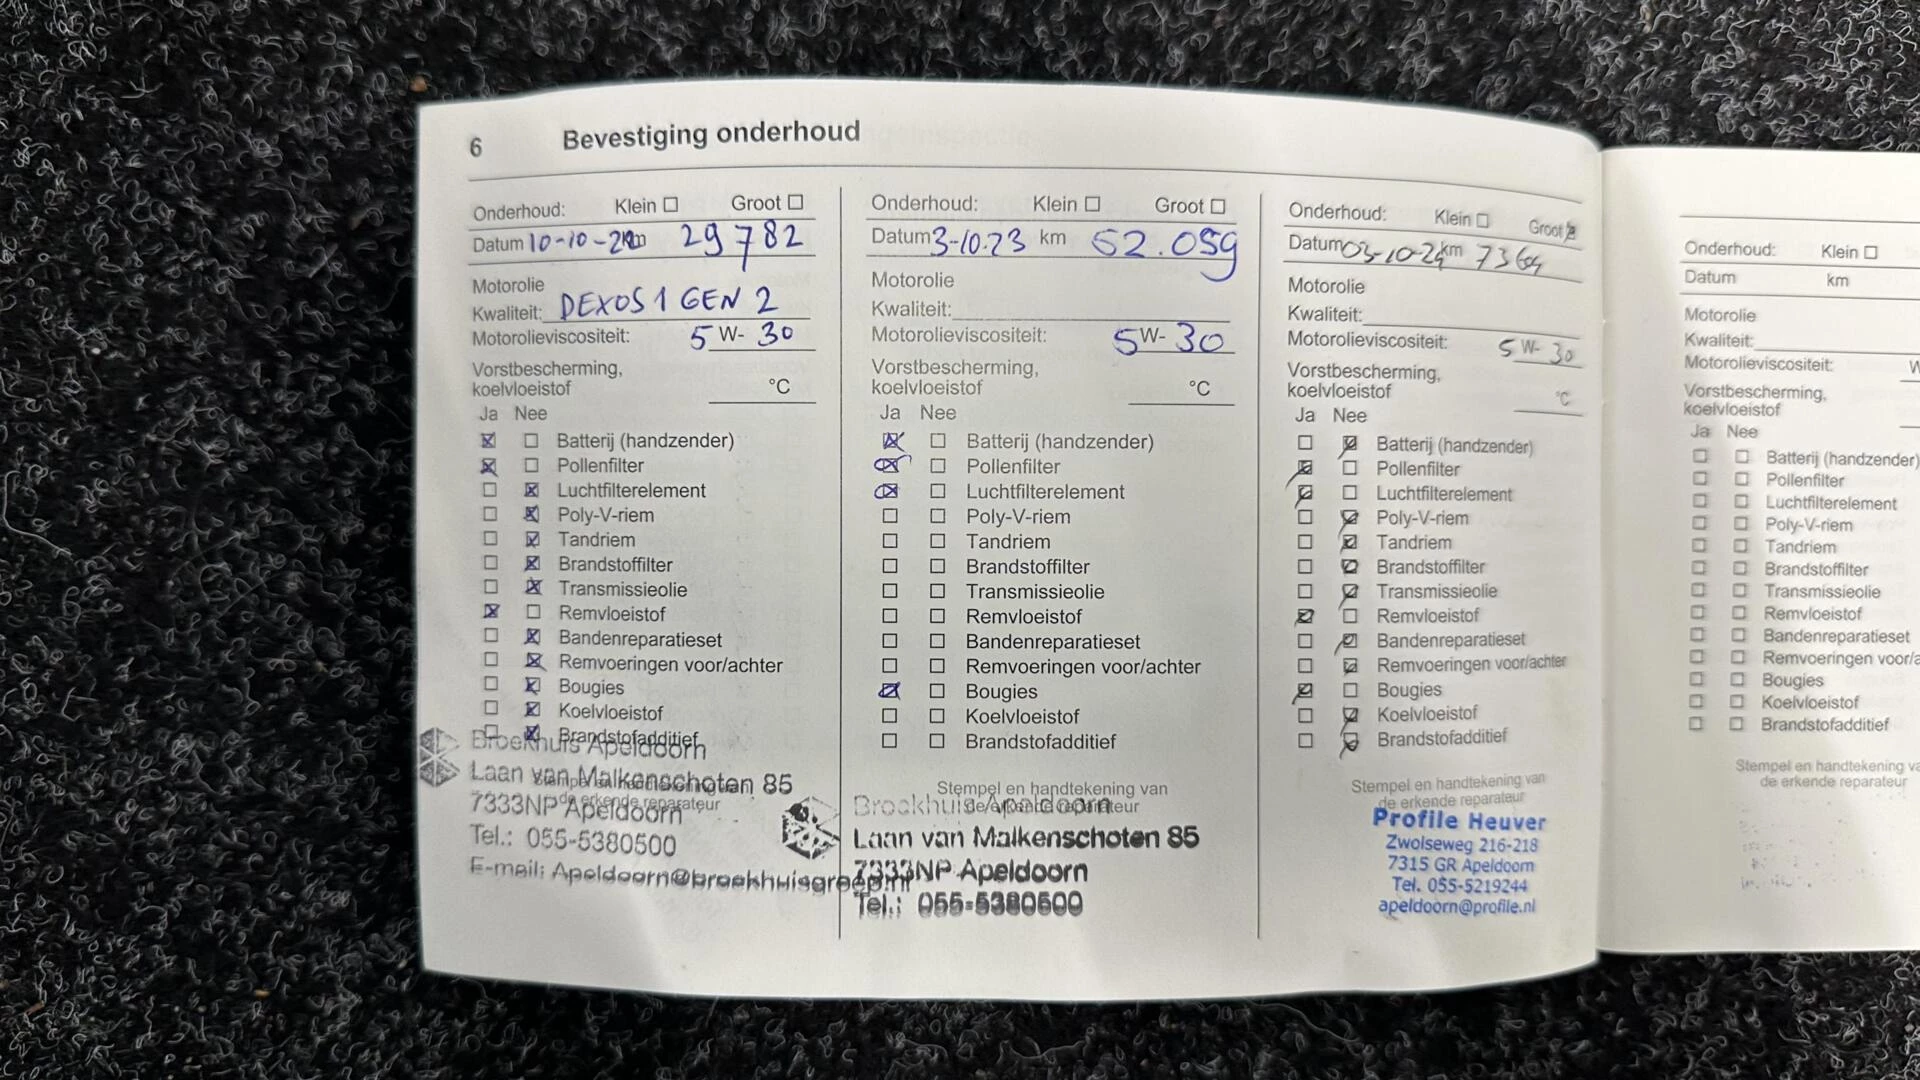 6 Bevestiging onderhoud
Onderhoud: Klein Groot
Datum 10-10-22 km 29782
Motorolie
Kwaliteit: DEXOS 1 GEN 2
Motorolieviscositeit: 5 W- 30
Vorstbescherming,
koelvloeistof °C
Ja Nee
Batterij (handzender)
Pollenfilter
Luchtfilterelement
Poly-V-riem
Tandriem
Brandstoffilter
Transmissieolie
Remvloeistof
Bandenreparatieset
Remvoeringen voor/achter
Bougies
Koelvloeistof
Brandstofadditief
Stempel en handtekening van
de erkende reparateur
Broekhuis Apeldoorn
Laan van Malkenschoten 85
7333NP Apeldoorn
Tel.: 055-5380500
E-mail: Apeldoorn@broekhuisgroep.nl
Onderhoud: Klein Groot
Datum 3-10-23 km 52.059
Motorolie
Kwaliteit:
Motorolieviscositeit: 5 W- 30
Vorstbescherming,
koelvloeistof °C
Ja Nee
Batterij (handzender)
Pollenfilter
Luchtfilterelement
Poly-V-riem
Tandriem
Brandstoffilter
Transmissieolie
Remvloeistof
Bandenreparatieset
Remvoeringen voor/achter
Bougies
Koelvloeistof
Brandstofadditief
Stempel en handtekening van
de erkende reparateur
Broekhuis Apeldoorn
Laan van Malkenschoten 85
7333NP Apeldoorn
Tel.: 055-5380500
Onderhoud: Klein Groot
Datum 03-10-24 km
Motorolie
Kwaliteit:
Motorolieviscositeit: 5 W- 30
Vorstbescherming,
koelvloeistof °C
Ja Nee
Batterij (handzender)
Pollenfilter
Luchtfilterelement
Poly-V-riem
Tandriem
Brandstoffilter
Transmissieolie
Remvloeistof
Bandenreparatieset
Remvoeringen voor/achter
Bougies
Koelvloeistof
Brandstofadditief
Stempel en handtekening van
de erkende reparateur
Profile Heuver
Zwolseweg 216-218
7315 GR Apeldoorn
Tel. 055-5219244
apeldoorn@profile.nl
Onderhoud: Klein
Datum km
Motorolie
Kwaliteit:
Motorolieviscositeit: W
Vorstbescherming,
koelvloeistof
Ja Nee
Batterij (handzender)
Pollenfilter
Luchtfilterelement
Poly-V-riem
Tandriem
Brandstoffilter
Transmissieolie
Remvloeistof
Bandenreparatieset
Remvoeringen voor/a
Bougies
Koelvloeistof
Brandstofadditief
Stempel en handtekening va
de erkende reparateur